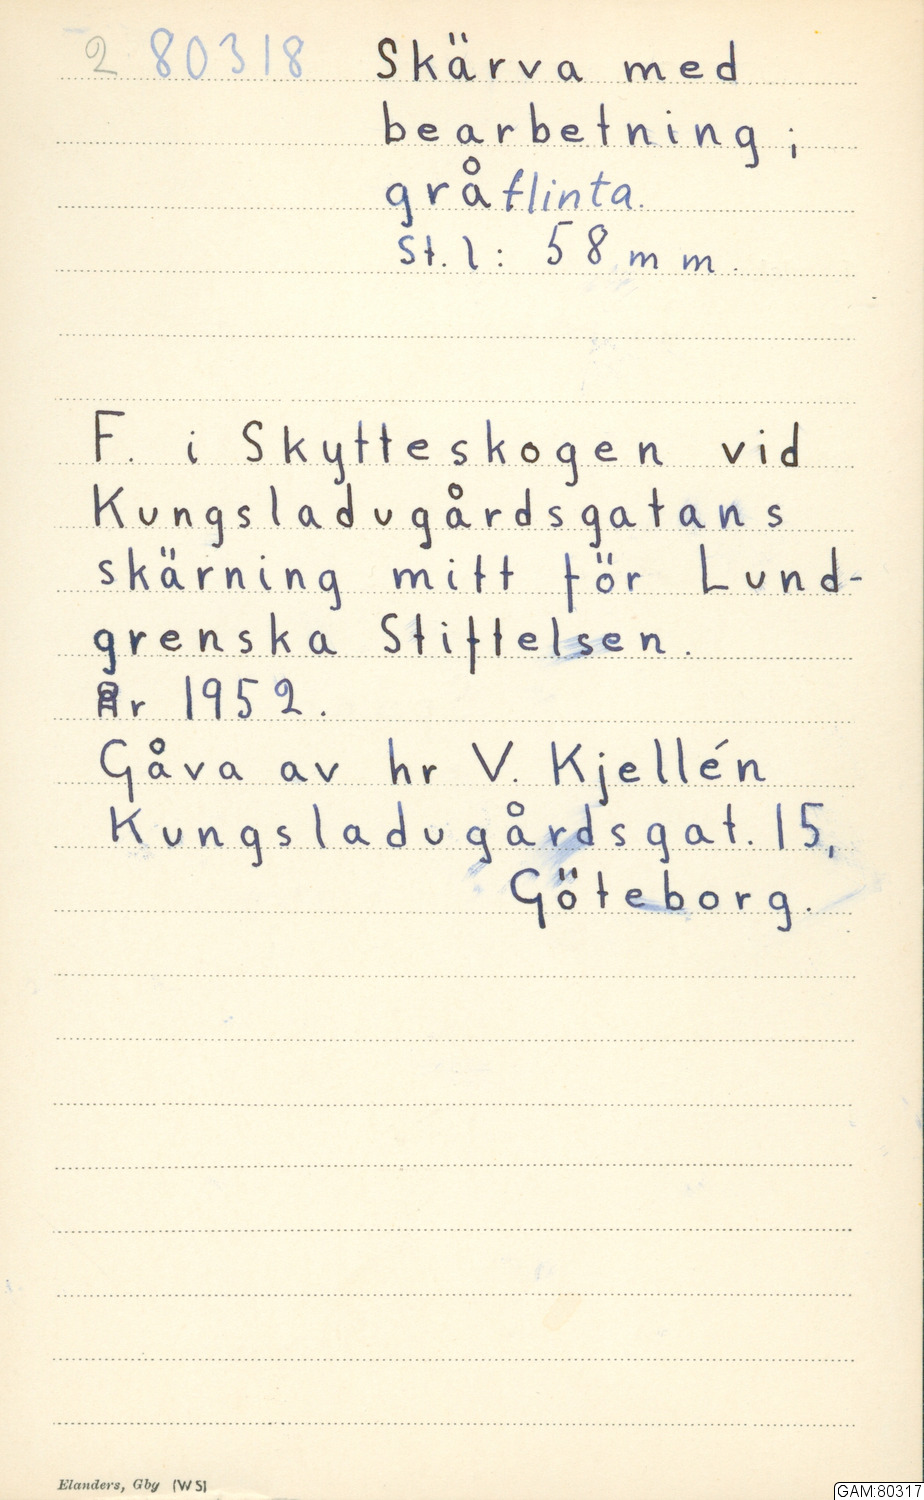 2 80318 Skärva med
bearbetning;
grå flinta.
St. l: 58 mm.
F. i Skytteskogen vid
Kungsladugårdsgatans
skärning mitt för Lund-
grenska Stiftelsen.
År 1952.
Gåva av hr V. Kjellén
Kungsladugårdsgat. 15,
Göteborg.
Elanders, Gby (WS)
GAM:80317